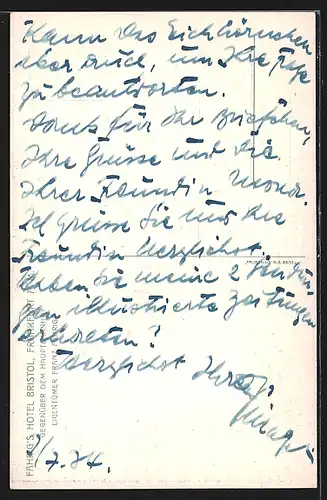 Kann das Eichhörnchen
aber auch, um Ihre Frage
zu beantworten.
Dank für Ihr Briefchen,
Ihre Grüsse und die
Ihrer Freundin
Ich grüsse Sie und die
Freundin herzlichst.
Haben Sie meine 2 Sendun-
gen illustrierte Zeitungen
erhalten?
Herzlichst Ihre
7.34.
FAHRIG'S HOTEL BRISTOL, FRANKFURT A. M.
GEGENÜBER DEM HAUPTBAHNHOF
EIGENTÜMER FRANZ FAHRIG